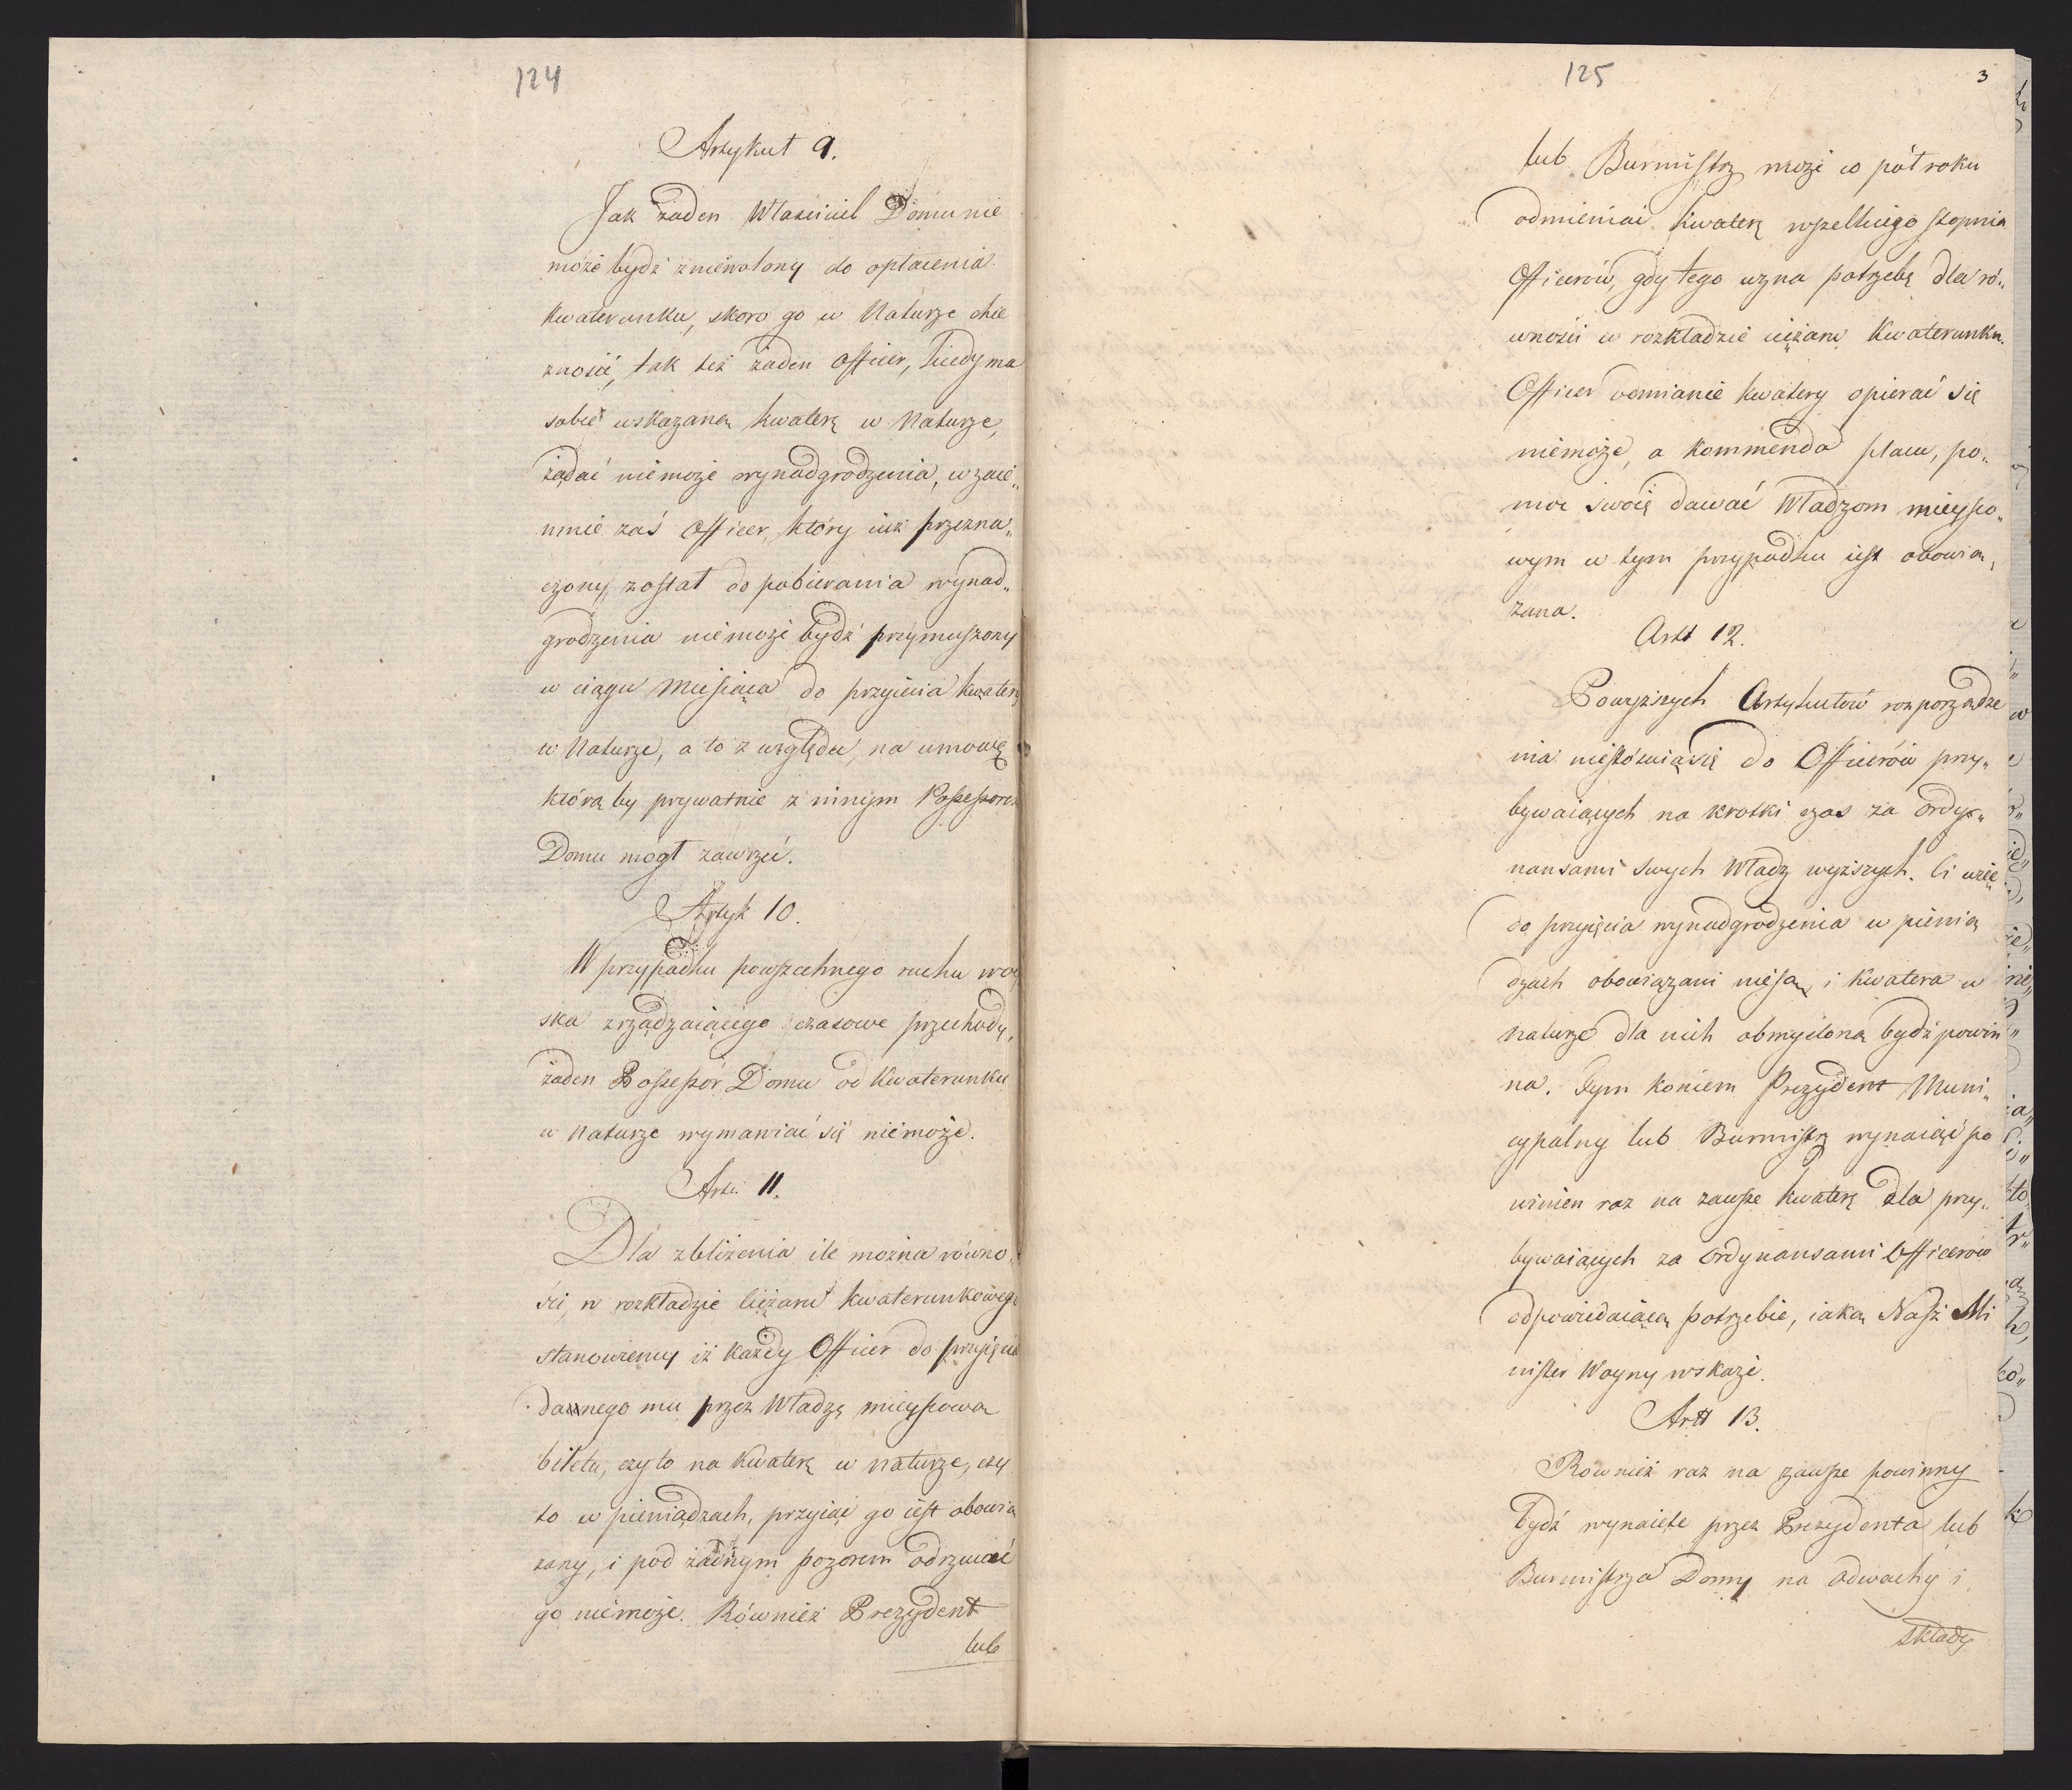 124
Artykuł 9.
Jak żaden Właściciel Domu nie
może bydź zniewolony do opłacenia
kwaterunku, skoro go w Naturze chce
znosić, tak też żaden Officer, kiedy ma
sobie wskazaną kwaterę w Naturze,
żądać niemoże wynadgrodzenia, wzaie„
mnie zaś Officer, który iuż przezna„
czony został do pobierania wynad„
grodzenia niemoże bydź przymuszony
w ciągu Miesiąca do przyięcia kwatery
w Naturze, a to z względu, na umowę
którą by prywatnie z innym Possessorem
Domu mógł zawrzeć.
Artyk 10.
W przypadku powszechnego ruchu woy
ska zrządzaiącego czasowe przechody,
żaden Possessor Domu od Kwaterunku
w Naturze wymawiać się niemoże.
Art: 11.
Dla zbliżenia ile można równo„
ści, w rozkładzie ciężaru kwaterunkowego
stanowiemy iż każdy Officer do przyięcia
dannego mu przez Władzę mieyscową
biletu, czy to na Kwaterę w naturze, czy
to w pieniądzach, przyiąć go iest obowią
zany, i pod żadnym pozorem odrzucać
go niemoże. Również Prezydent
lub
125
3
lub Burmistrz może co pół roku
odmieniać Kwaterę wszelkiego stopnia
Officerów, gdy tego uzna potrzebę dla ró„
wności w rozkładzie ciężaru Kwaterunku.
Officer odmianie kwatery opierać się
niemoże, a Kommenda placu, po„
moc swoię dawać Władzom mieysco„
wym w tym przypadku iest obowią„
zana.
Artt 12.
Powyższych Artykułów rozporządze
nia niestósuią się do Officerów przy„
bywaiących na krotki czas za Ordy„
nansami swych Władz wyższych. Ci więc
do przyięcia wynadgrodzenia w pienią
dzach obowiązani niesą, i Kwatera w
naturze dla nich obmyśloną bydź powin
na. Tym końcem Prezydent Muni„
cypalny lub Burmistrz wynaiąć po
winien raz na zawsze kwaterę dla przy„
bywaiących za Ordynansami Officerow
odpowiedaiącą potrzebie, iaką Nasz Mi
nister Woyny wskaże.
Artt 13.
Rownież raz na zawsze powinny
bydź wynaięte przez Prezydenta lub
Burmistrza Domy na Odwachy i
składy